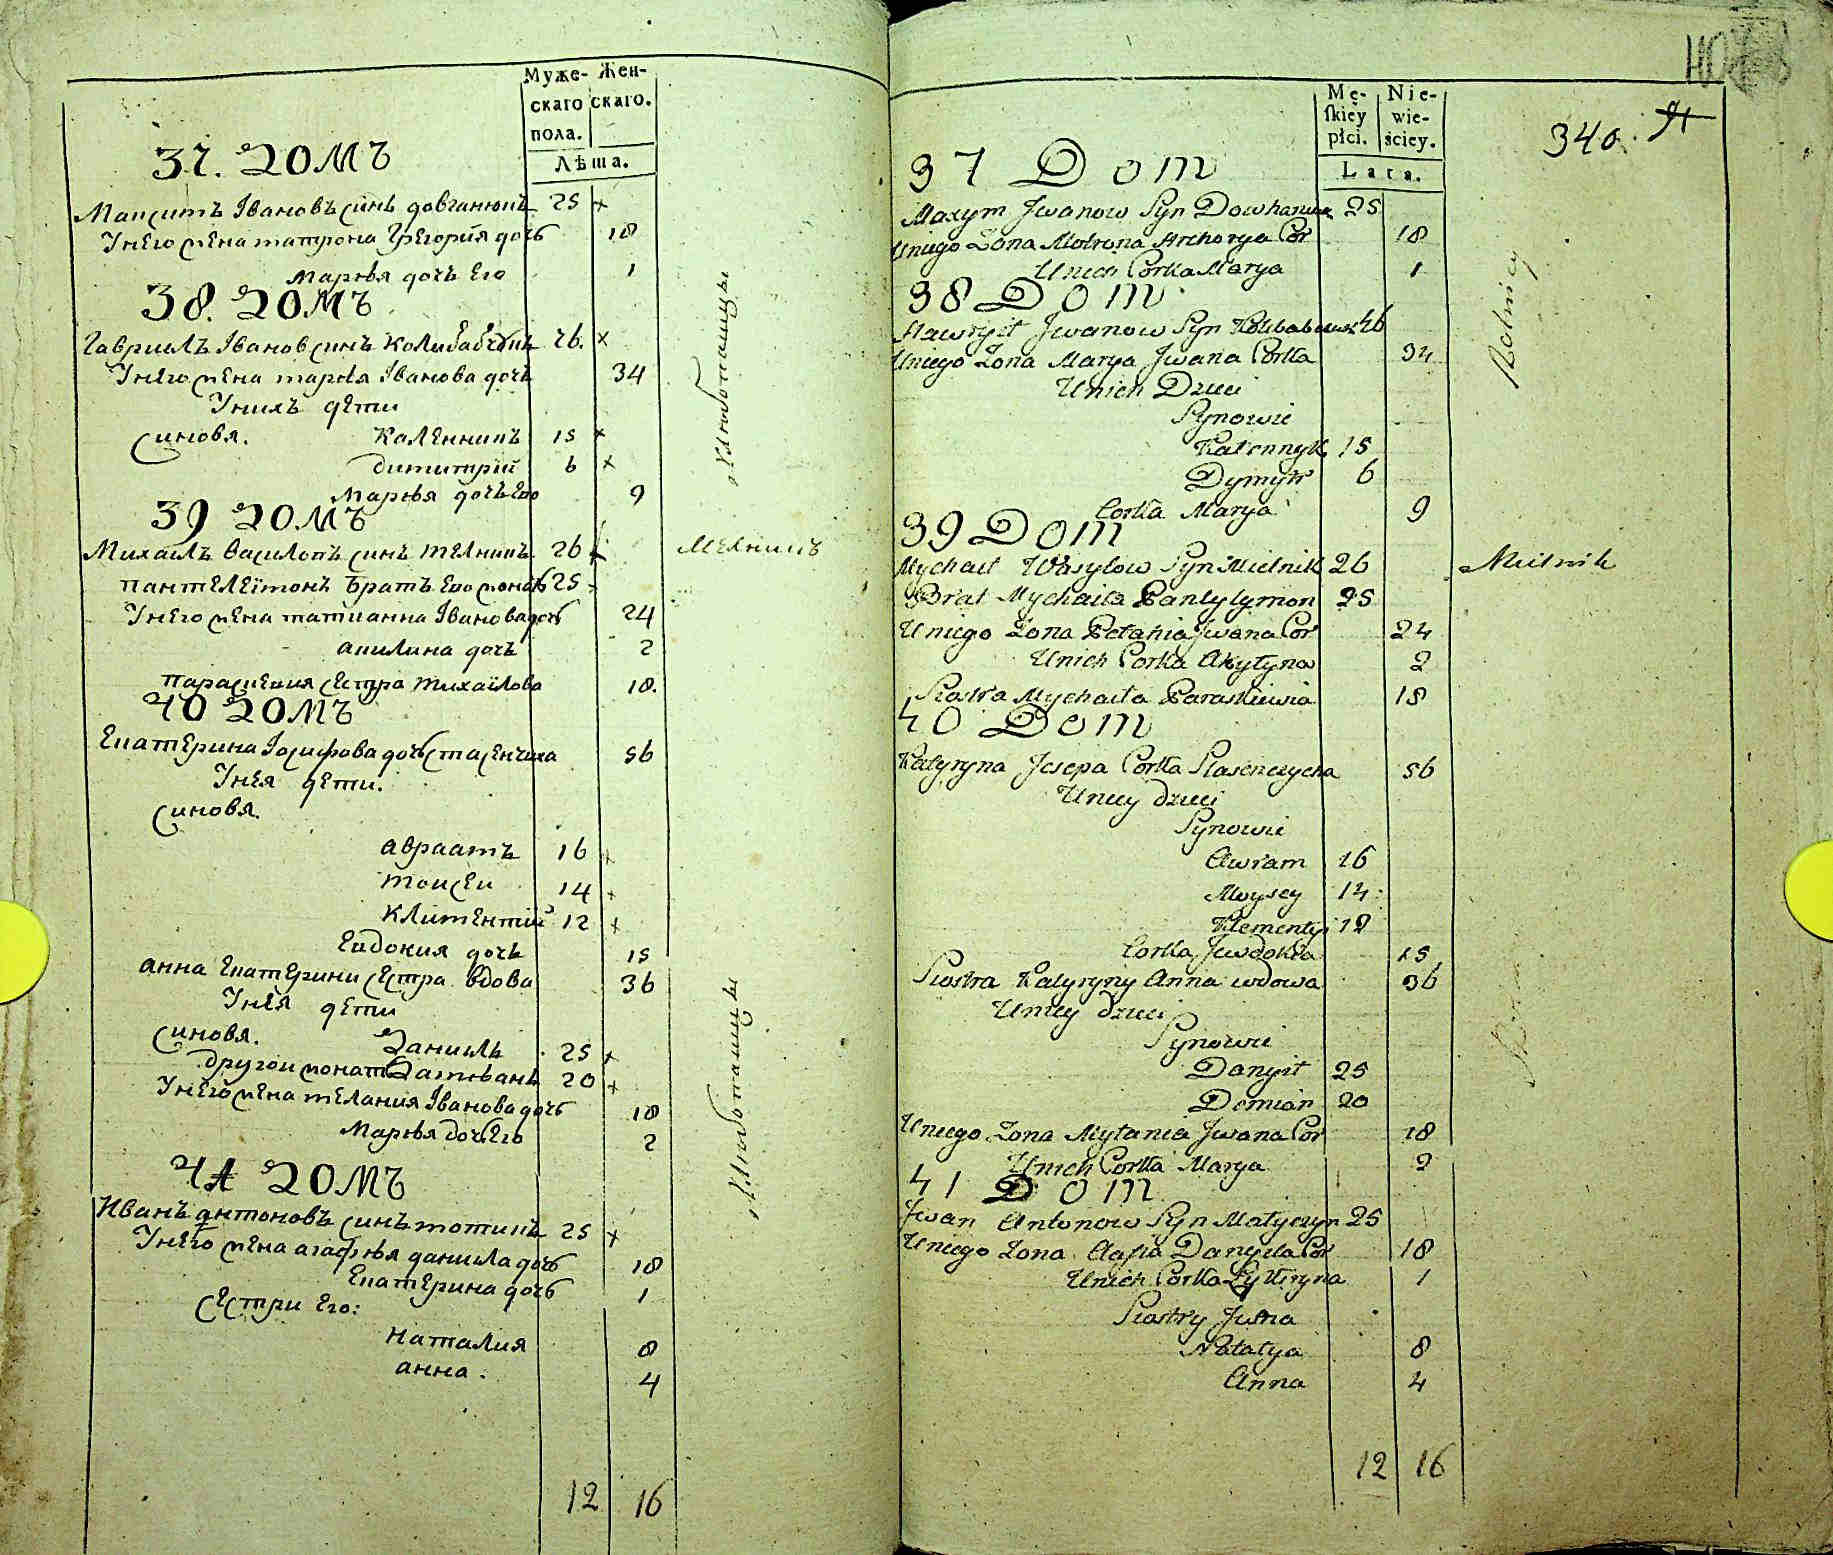 Муже- Жен-
скаго скаго.
пола.
Лѣта.
37. ДОМЪ
Максимъ Івановъ синъ довганюкъ 25 x
Унего жена матрона Григория дочь 18
Марья дочь Его 1
38. ДОМЪ
Гавриилъ Іванов синъ 26. x
Унего жена марья Іванова дочь 34
Унихъ дети
синовя. Каленникъ 15 x
димитрий 6 x
Марья дочь Его 9
39 ДОМЪ
Михаилъ василовъ синъ мелникъ 26 x Мелникъ
пантелеімонъ братъ Его женатъ 25
Унего жена татианна Іванова дочь 24
акилина дочь 2
параскевия сестра михаілова 18.
40 ДОМЪ
Екатерина Іосифова дочь стасенчиха 56
Унея дети.
синовя.
авраамъ 16 x
моисеи 14 x
климентий 12 x
Евдокия дочь 15
анна Екатерини сестра вдова 36
Унея дети
синовя. Даниилъ 25 x
другои женат Дамианъ 20 x
Унего жена мелания Іванова дочь 18
Марья дочь Его 2
41 ДОМЪ
Иванъ антоновъ синъ 25 x
Унего жена агафья данила дочь 18
Екатерина дочь 1
сестри Его:
наталия 8
анна. 4
12 16
Хлѣбопашцы
Хлѣбопашцы
Mę- Nie-
ſkiey wie-
płci. ściey.
Lata.
340.
37 Dom
Maxym Jwanow Syn Dowhaniuk 25
Uniego Zona Motrona Cor 18
Unich Corka Marya 1
38 Dom
Hawryił Jwanow Syn 26
Uniego Zona Marya Jwana Corka 34
Unich Dzieci
Synowie
Kalennyk 15
Dymytr 6
Corka Marya 9
39 Dom
Mychaił Wasylow Syn Mielnik 26 Mielnik
Brat Mychaiła Pantylymon 25
Uniego Zona Jwana Cor 24
Unich Corka Akylyna 2
Siostra Mychaiła Paraskiewia 18
40 Dom
Katyryna Josepa Corka Stasenczycha 56
Uniey dzieci
Synowie
Awram 16
Moysey 14
Klementyi 12
Corka Jewdokia 15
Siostra Katyryny Anna wdowa 36
Uniey dzieci
Synowie
Danyił 25
Demian 20
Uniego Zona Mylania Jwana Cor 18
Unich Corka Marya 2
41 Dom
Jwan Antonow Syn 25
Uniego Zona Aafia Danyiła Cor 18
Unich Corka 1
Siostry Jwana
Natalya 8
Anna 4
12 16
Rolnicy